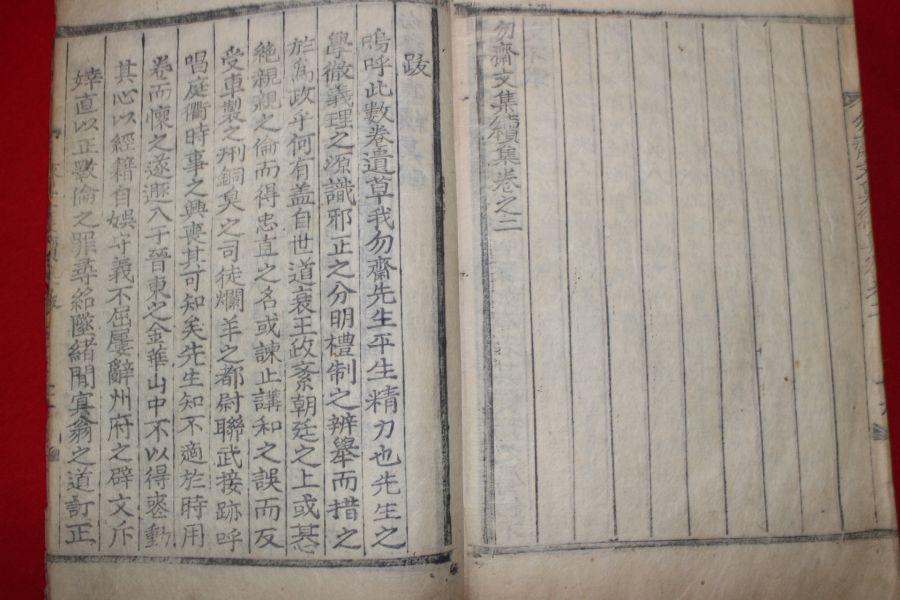 勿齋文集續集卷之二
跋
嗚呼此數卷遺草我勿齋先生平生精力也先生之
學微義理之源識邪正之分明禮制之辨舉而措之
於爲政乎何有盖自世道衰王政紊朝廷之上或惎
絶親親之倫而得忠直之名或諫止講和之誤而反
受車製之刑銅臭之司徒爛羊之都尉聯武接跡呼
唱庭衢時事之興喪其可知矣先生知不適於時用
卷而懷之遂遯入于晉東之金華山中不以得喪動
其心以經籍自娛守義不屈屢辭州府之辟文斥
婞直以正斁倫之罪尋紹墜緖聞寘翁之道訂正